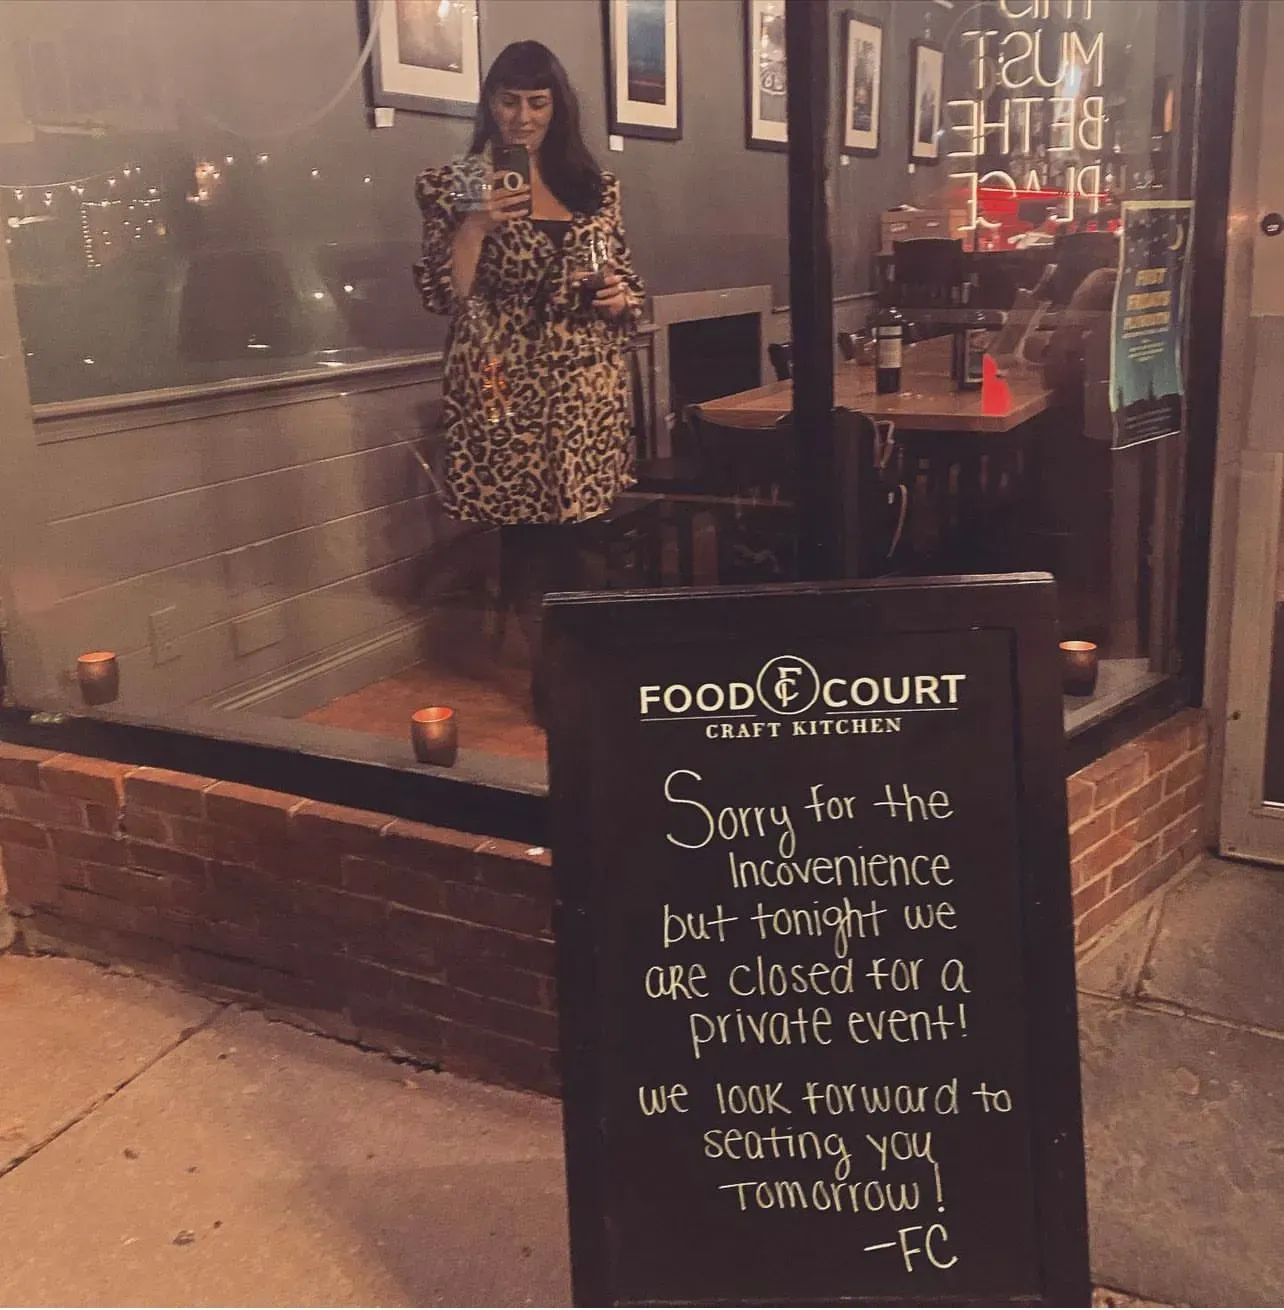 MUST
BE THE
PLACE
FIRST
FRIDAYS
FOOD FC COURT
CRAFT KITCHEN
Sorry for the
Incovenience
but tonight we
are closed for a
private event!
we look forward to
seating you
Tomorrow!
-FC